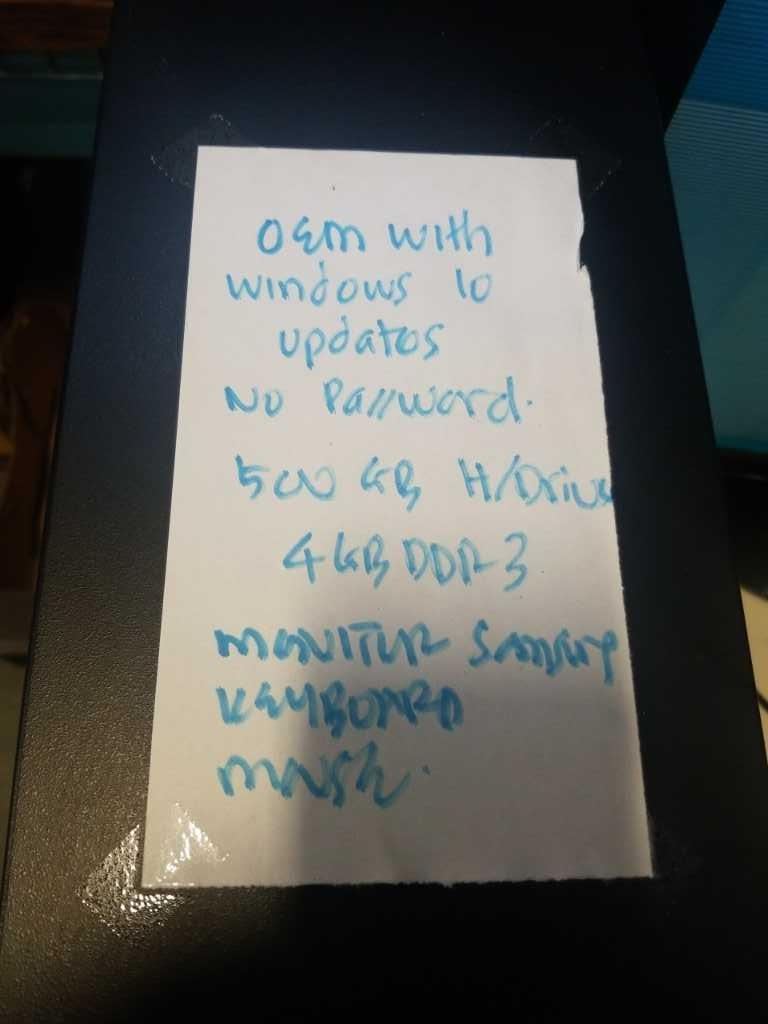 OEM with
windows 10
updates
No Password.
500 GB H/Drive
4GB DDR3
MONITOR SAMSUNG
KEYBOARD